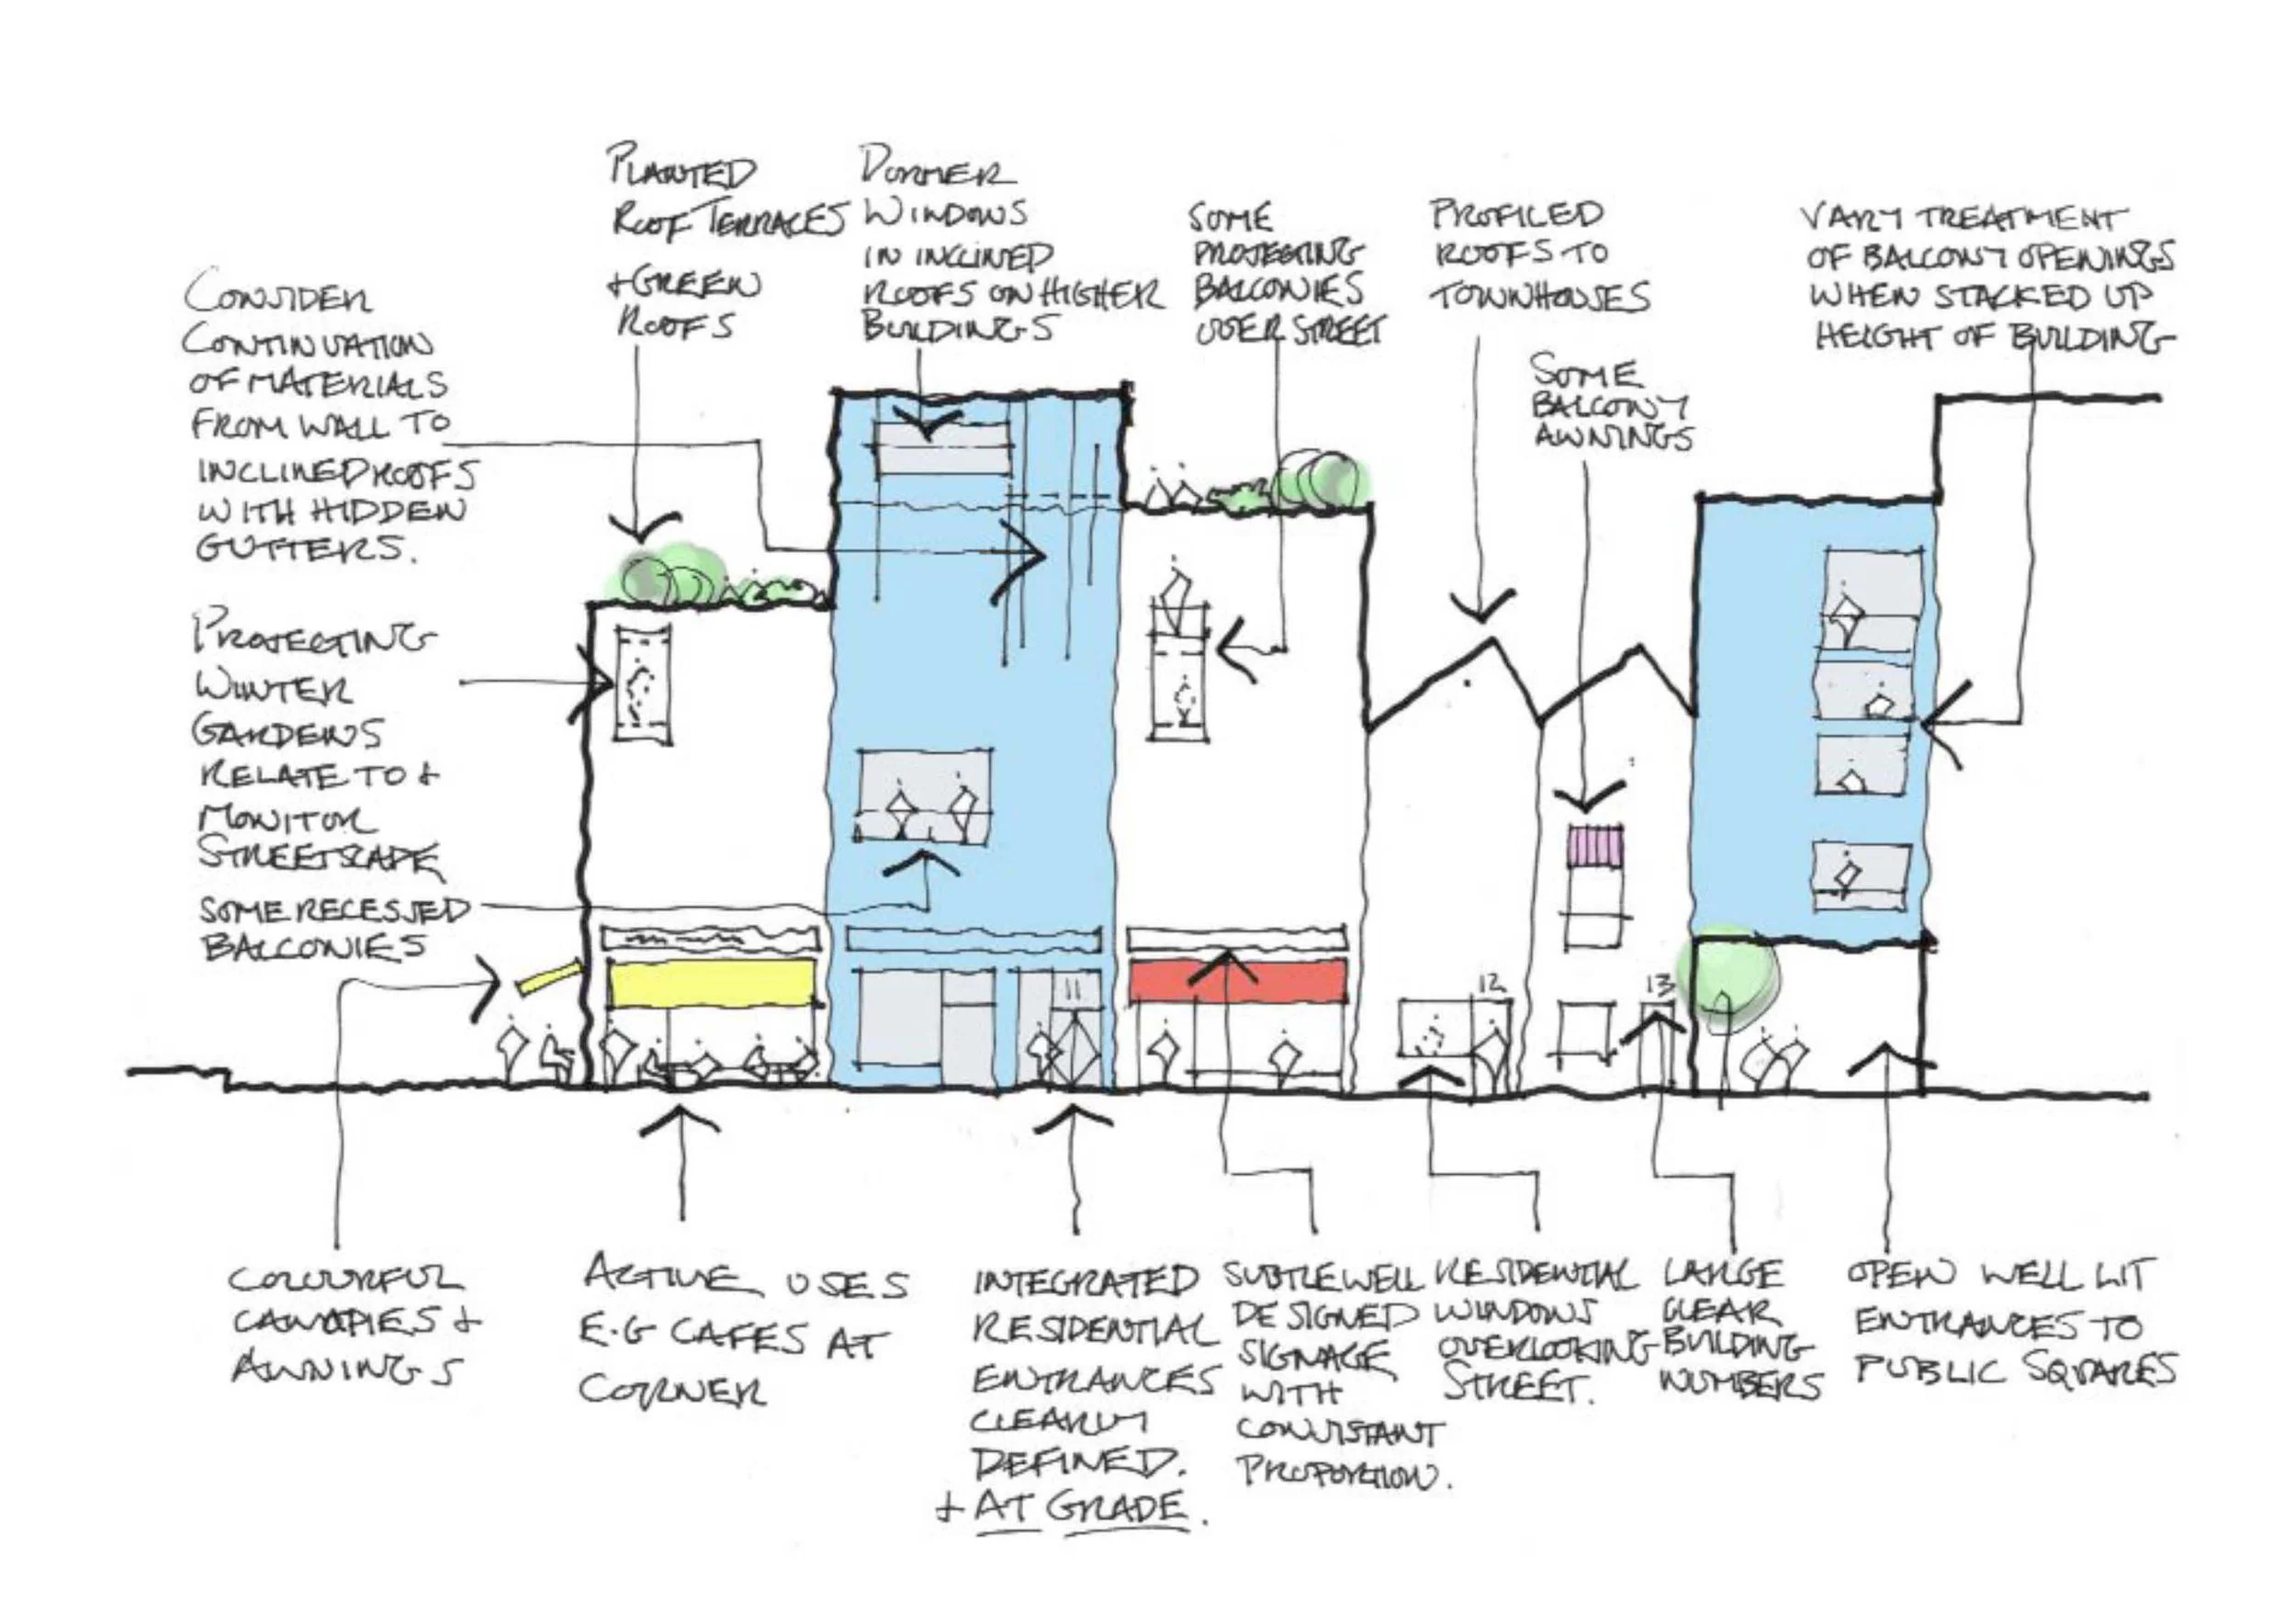 PLANTED
ROOF TERRACES
+ GREEN
ROOFS
DORMER
WINDOWS
IN INCLINED
ROOFS ON HIGHER
BUILDINGS
SOME
PROJECTING
BALCONIES
OVER STREET
PROFILED
ROOFS TO
TOWNHOUSES
VARY TREATMENT
OF BALCONY OPENINGS
WHEN STACKED UP
HEIGHT OF BUILDING
CONSIDER
CONTINUATION
OF MATERIALS
FROM WALL TO
INCLINED ROOFS
WITH HIDDEN
GUTTERS.
SOME
BALCONY
AWNINGS
PROJECTING
WINTER
GARDENS
RELATE TO +
MONITOR
STREETSCAPE
SOME RECESSED
BALCONIES
11
12
13
COLOURFUL
CANOPIES +
AWNINGS
ACTIVE USES
E.G CAFES AT
CORNER
INTEGRATED
RESIDENTIAL
ENTRANCES
CLEARLY
DEFINED.
+ AT GRADE.
SUBTLE WELL
DESIGNED
SIGNAGE
WITH
CONSISTANT
PROPORTION.
RESIDENTIAL
WINDOWS
OVERLOOKING
STREET.
LARGE
CLEAR
BUILDING
NUMBERS
OPEN WELL LIT
ENTRANCES TO
PUBLIC SQUARES